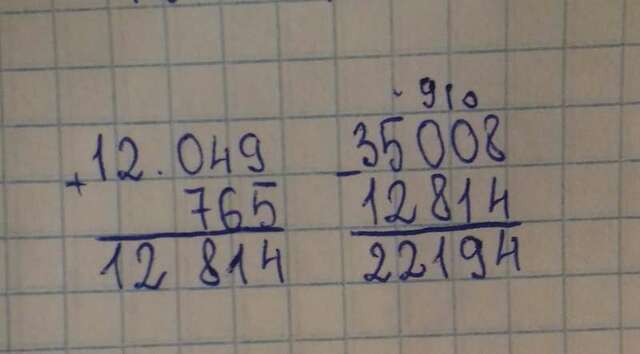 12.049
+
765
12 814
. 9 10
35008
-
12814
22194